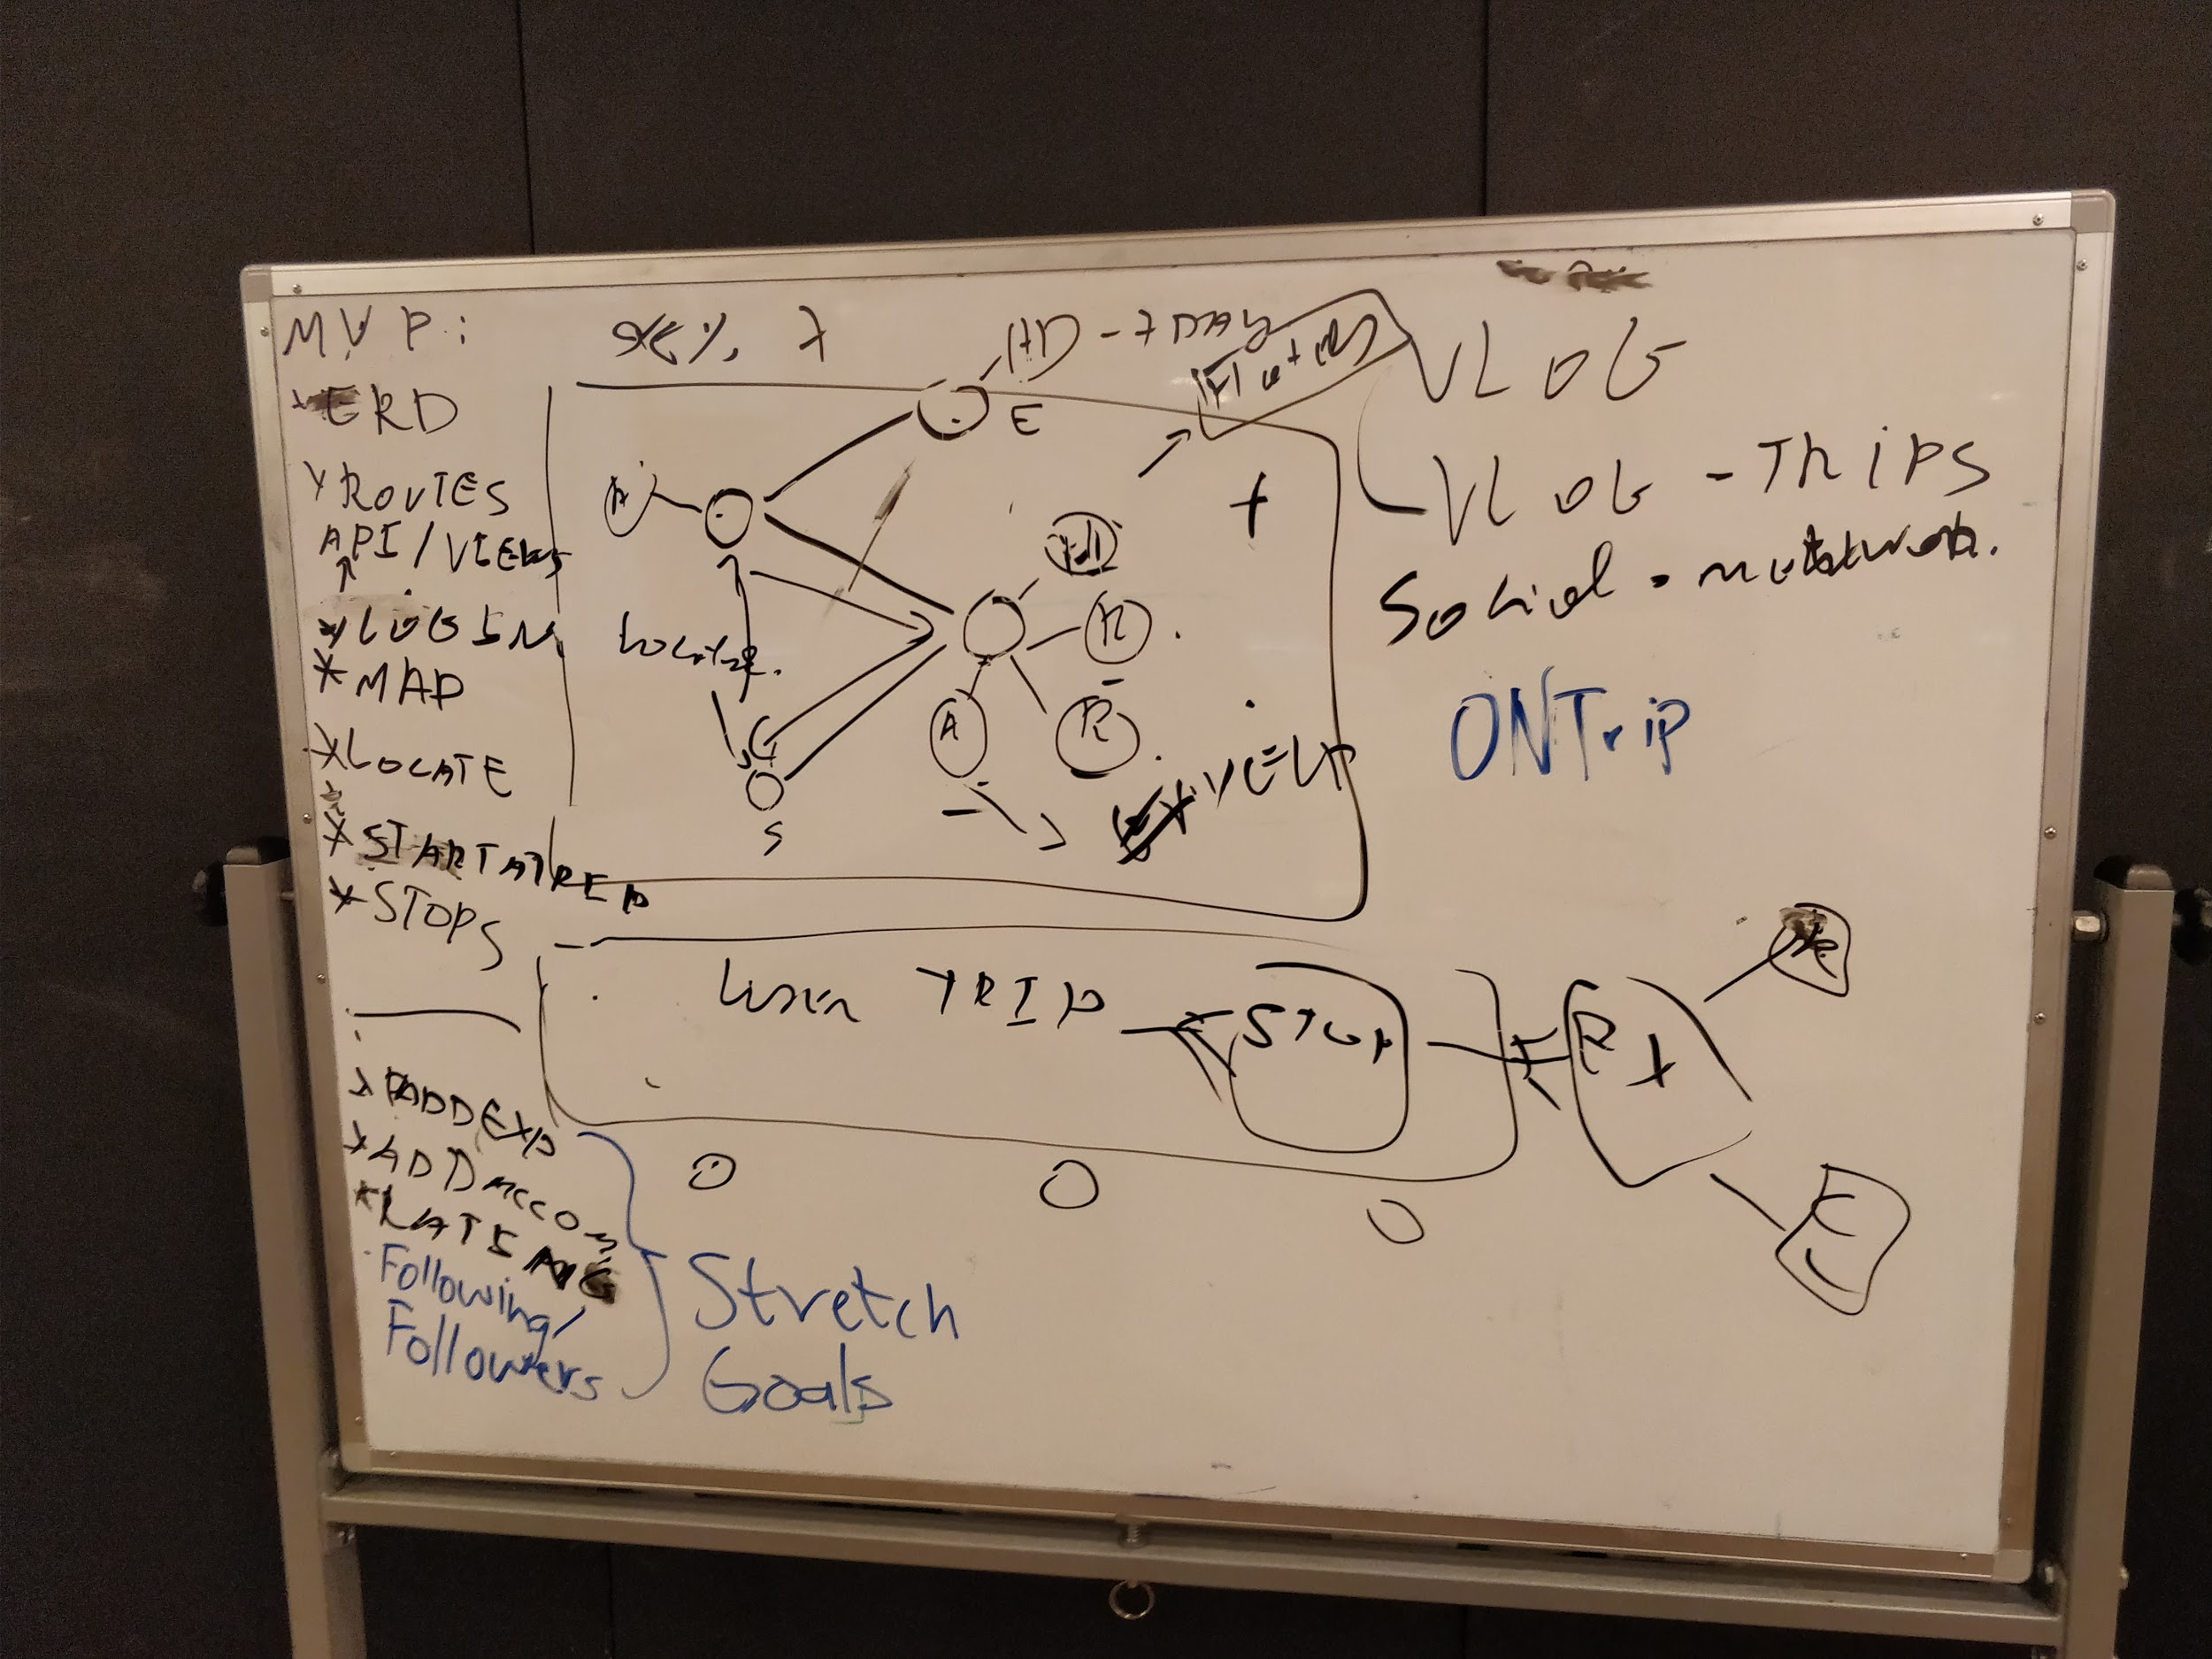 MVP:
ERD
ROUTES
API/VIEWS
LOGIN
* MAP
* LOCATE
* START A TREP
* STOPS
ADD EXP
* ADD ACCOM
* RATING
Following/
Followers
Stretch
Goals
- 7 DAY
E
A
R
R
S
+
VLOG
VLOG - TRIPS
Social - network.
ONTrip
User TRIP
STOP
E